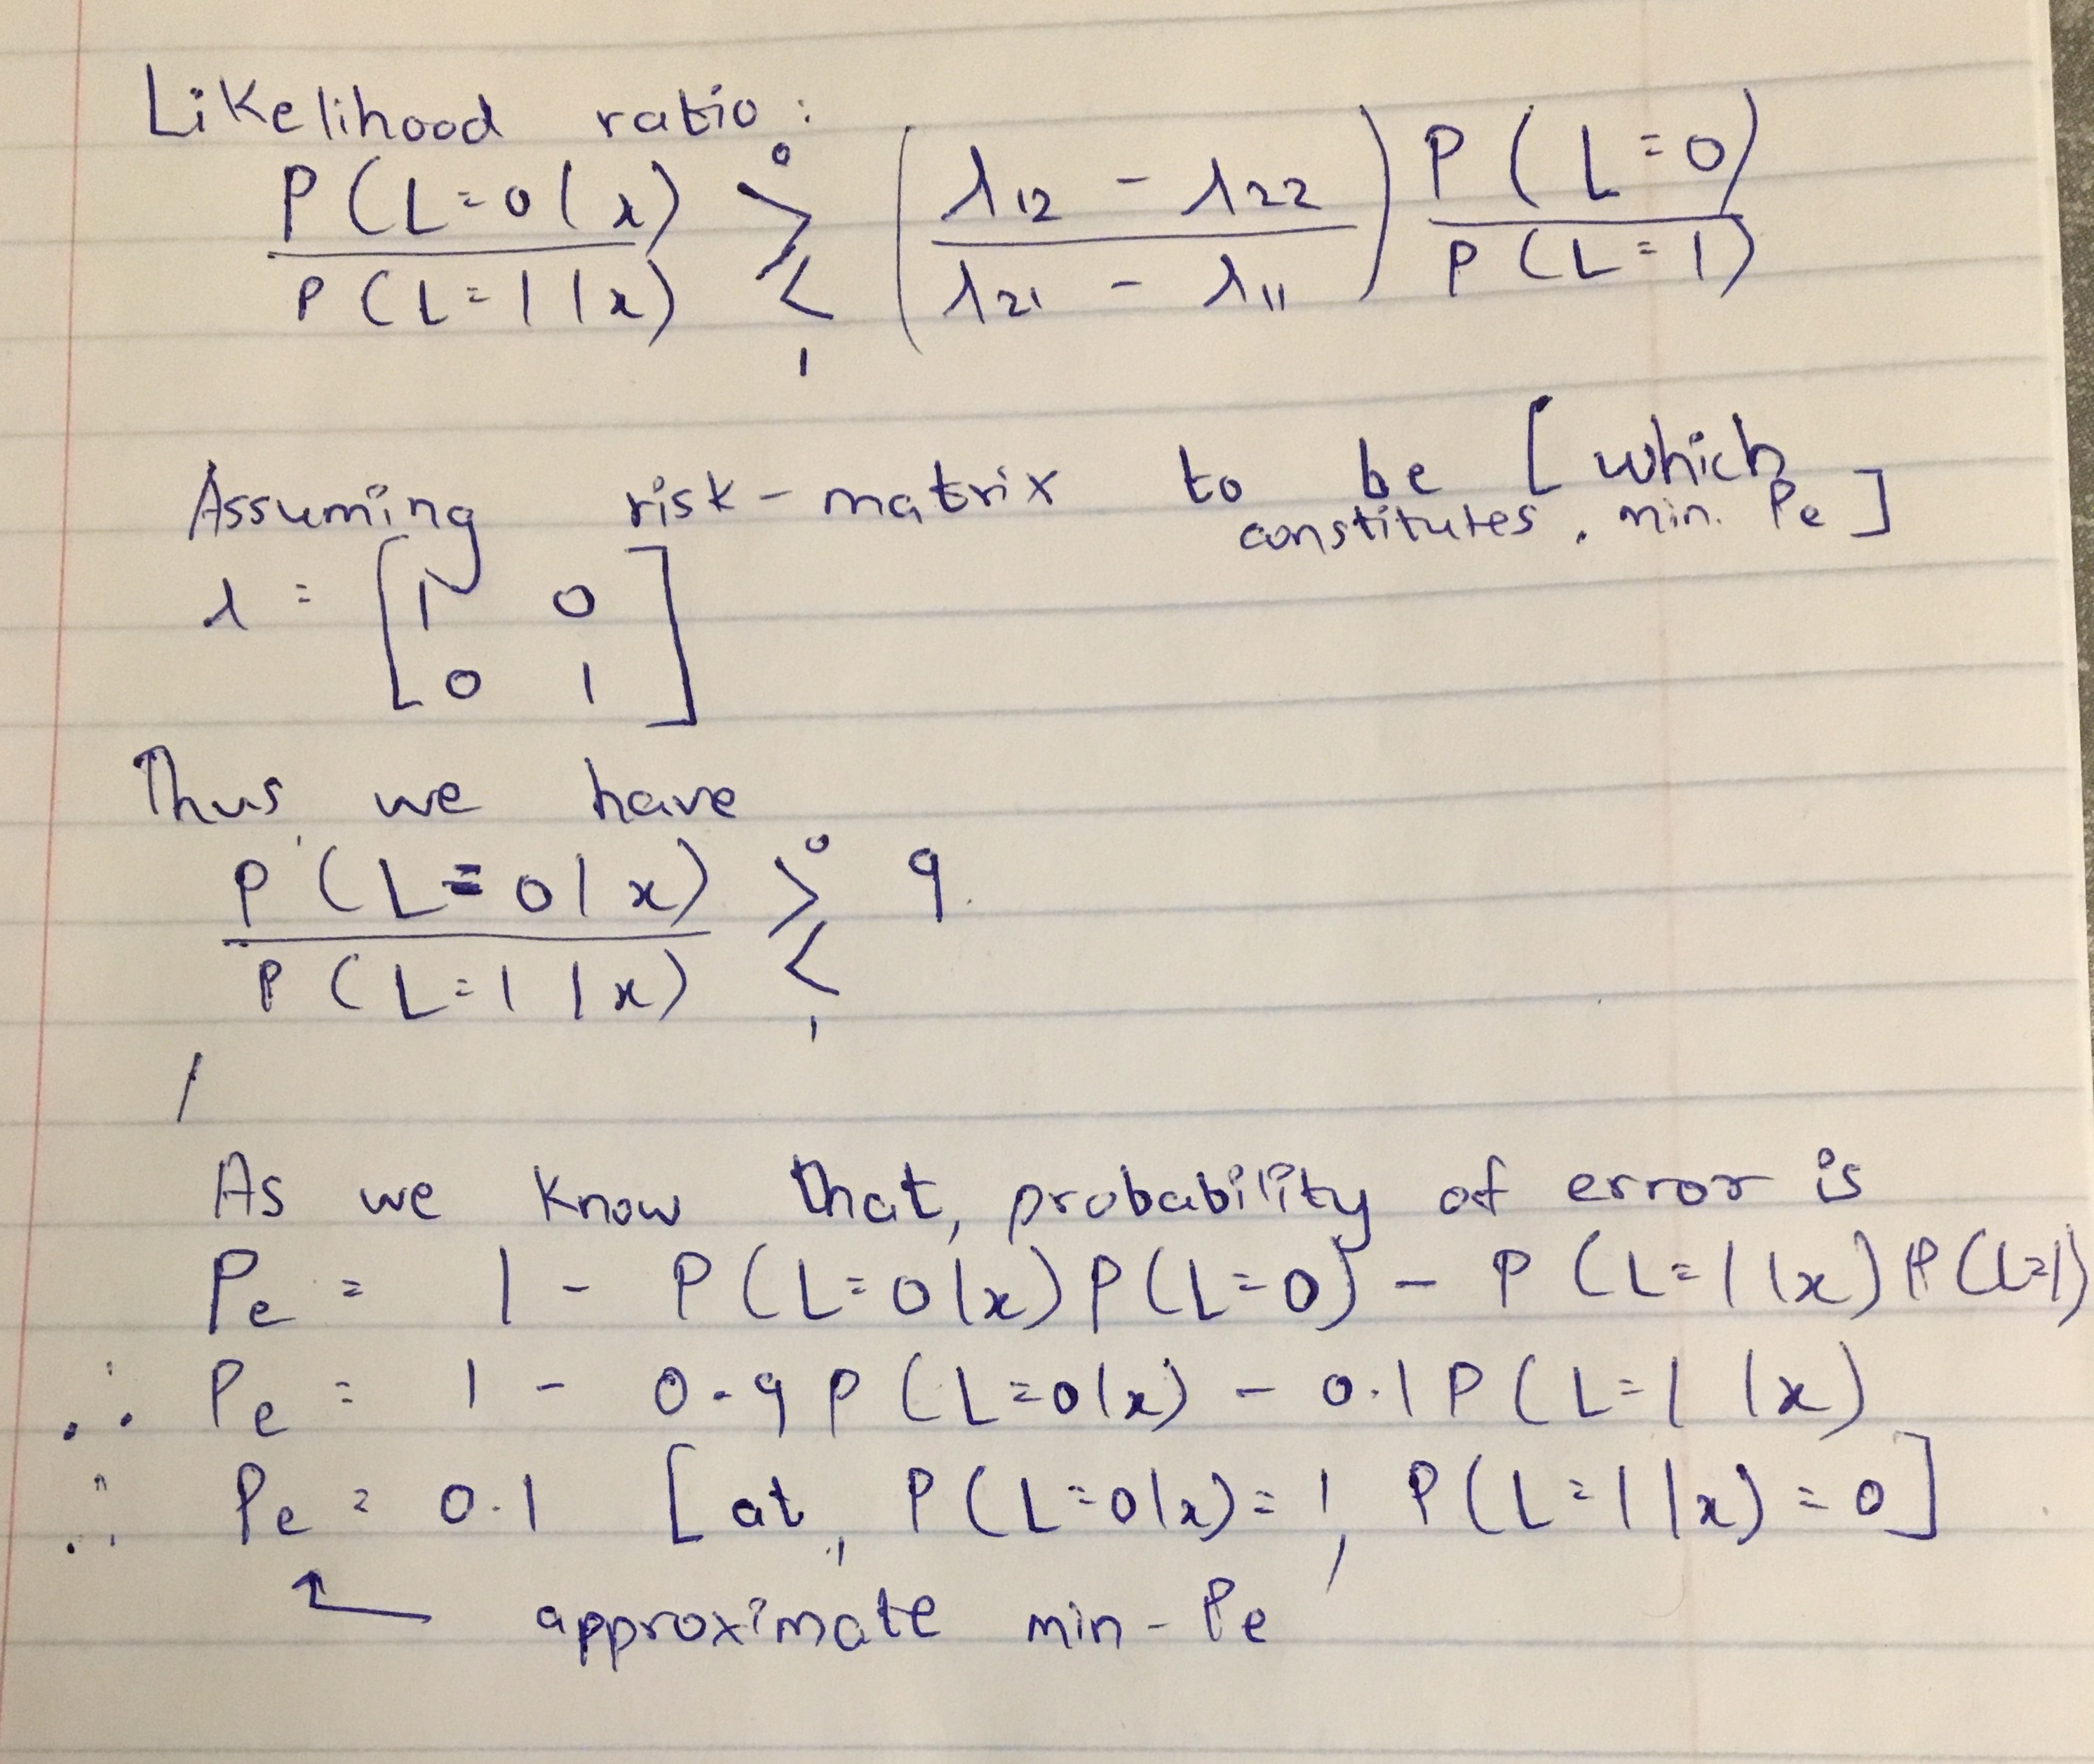 Likelihood ratio:
P(L=0|x) / P(L=1|x) >^0 <_1 ((λ12 - λ22) / (λ21 - λ11)) P(L=0) / P(L=1)
Assuming risk-matrix to be [which
constitutes, min. Pe]
λ = [1 0
0 1]
Thus we have
P(L=0|x) / P(L=1|x) >^0 <_1 9.
As we know that, probability of error is
Pe = 1 - P(L=0|x)P(L=0) - P(L=1|x)P(L=1)
∴ Pe = 1 - 0.9P(L=0|x) - 0.1P(L=1|x)
∴ Pe = 0.1 [at, P(L=0|x)=1, P(L=1|x)=0]
approximate min-Pe